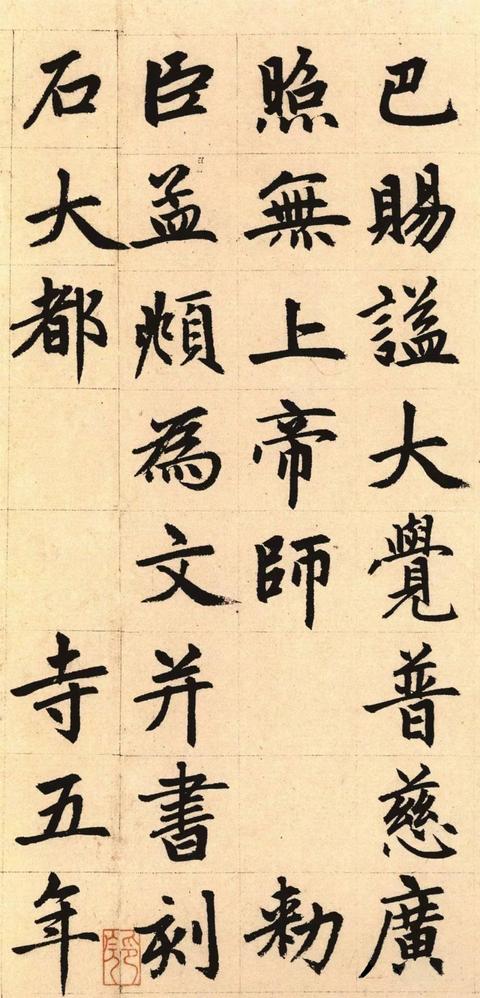 巴賜謚大覺普慈廣
照無上帝師 勑
臣孟頫為文并書刻
石大都 寺五年